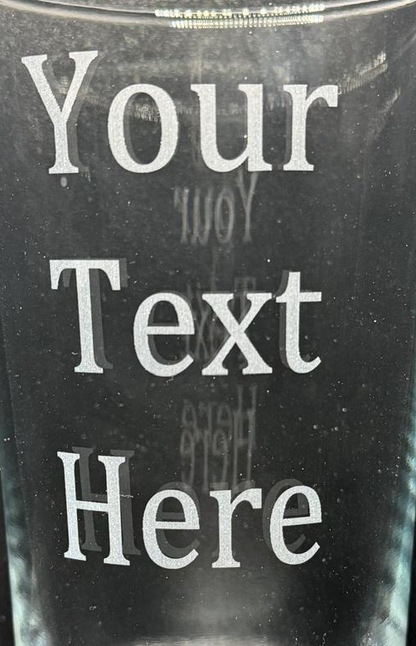 Your
Text
Here